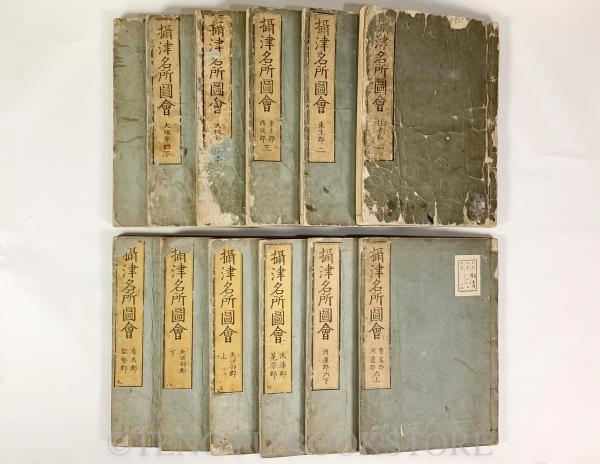 攝津名所圖會
住吉郡
攝津名所圖會
東生郡 二
攝津名所圖會
東生郡
西成郡 三
攝津名所圖會
大坂部
攝津名所圖會
大坂部四下
攝津名所圖會
豊嶌郡
河邊郡 六上
攝津名所圖會
河邊郡 六下
攝津名所圖會
武庫郡
菟原郡 七
攝津名所圖會
矢田部郡
上
攝津名所圖會
矢田部郡
下
八
攝津名所圖會
有馬郡
能勢郡
九
©TENGYU BOOKSTORE